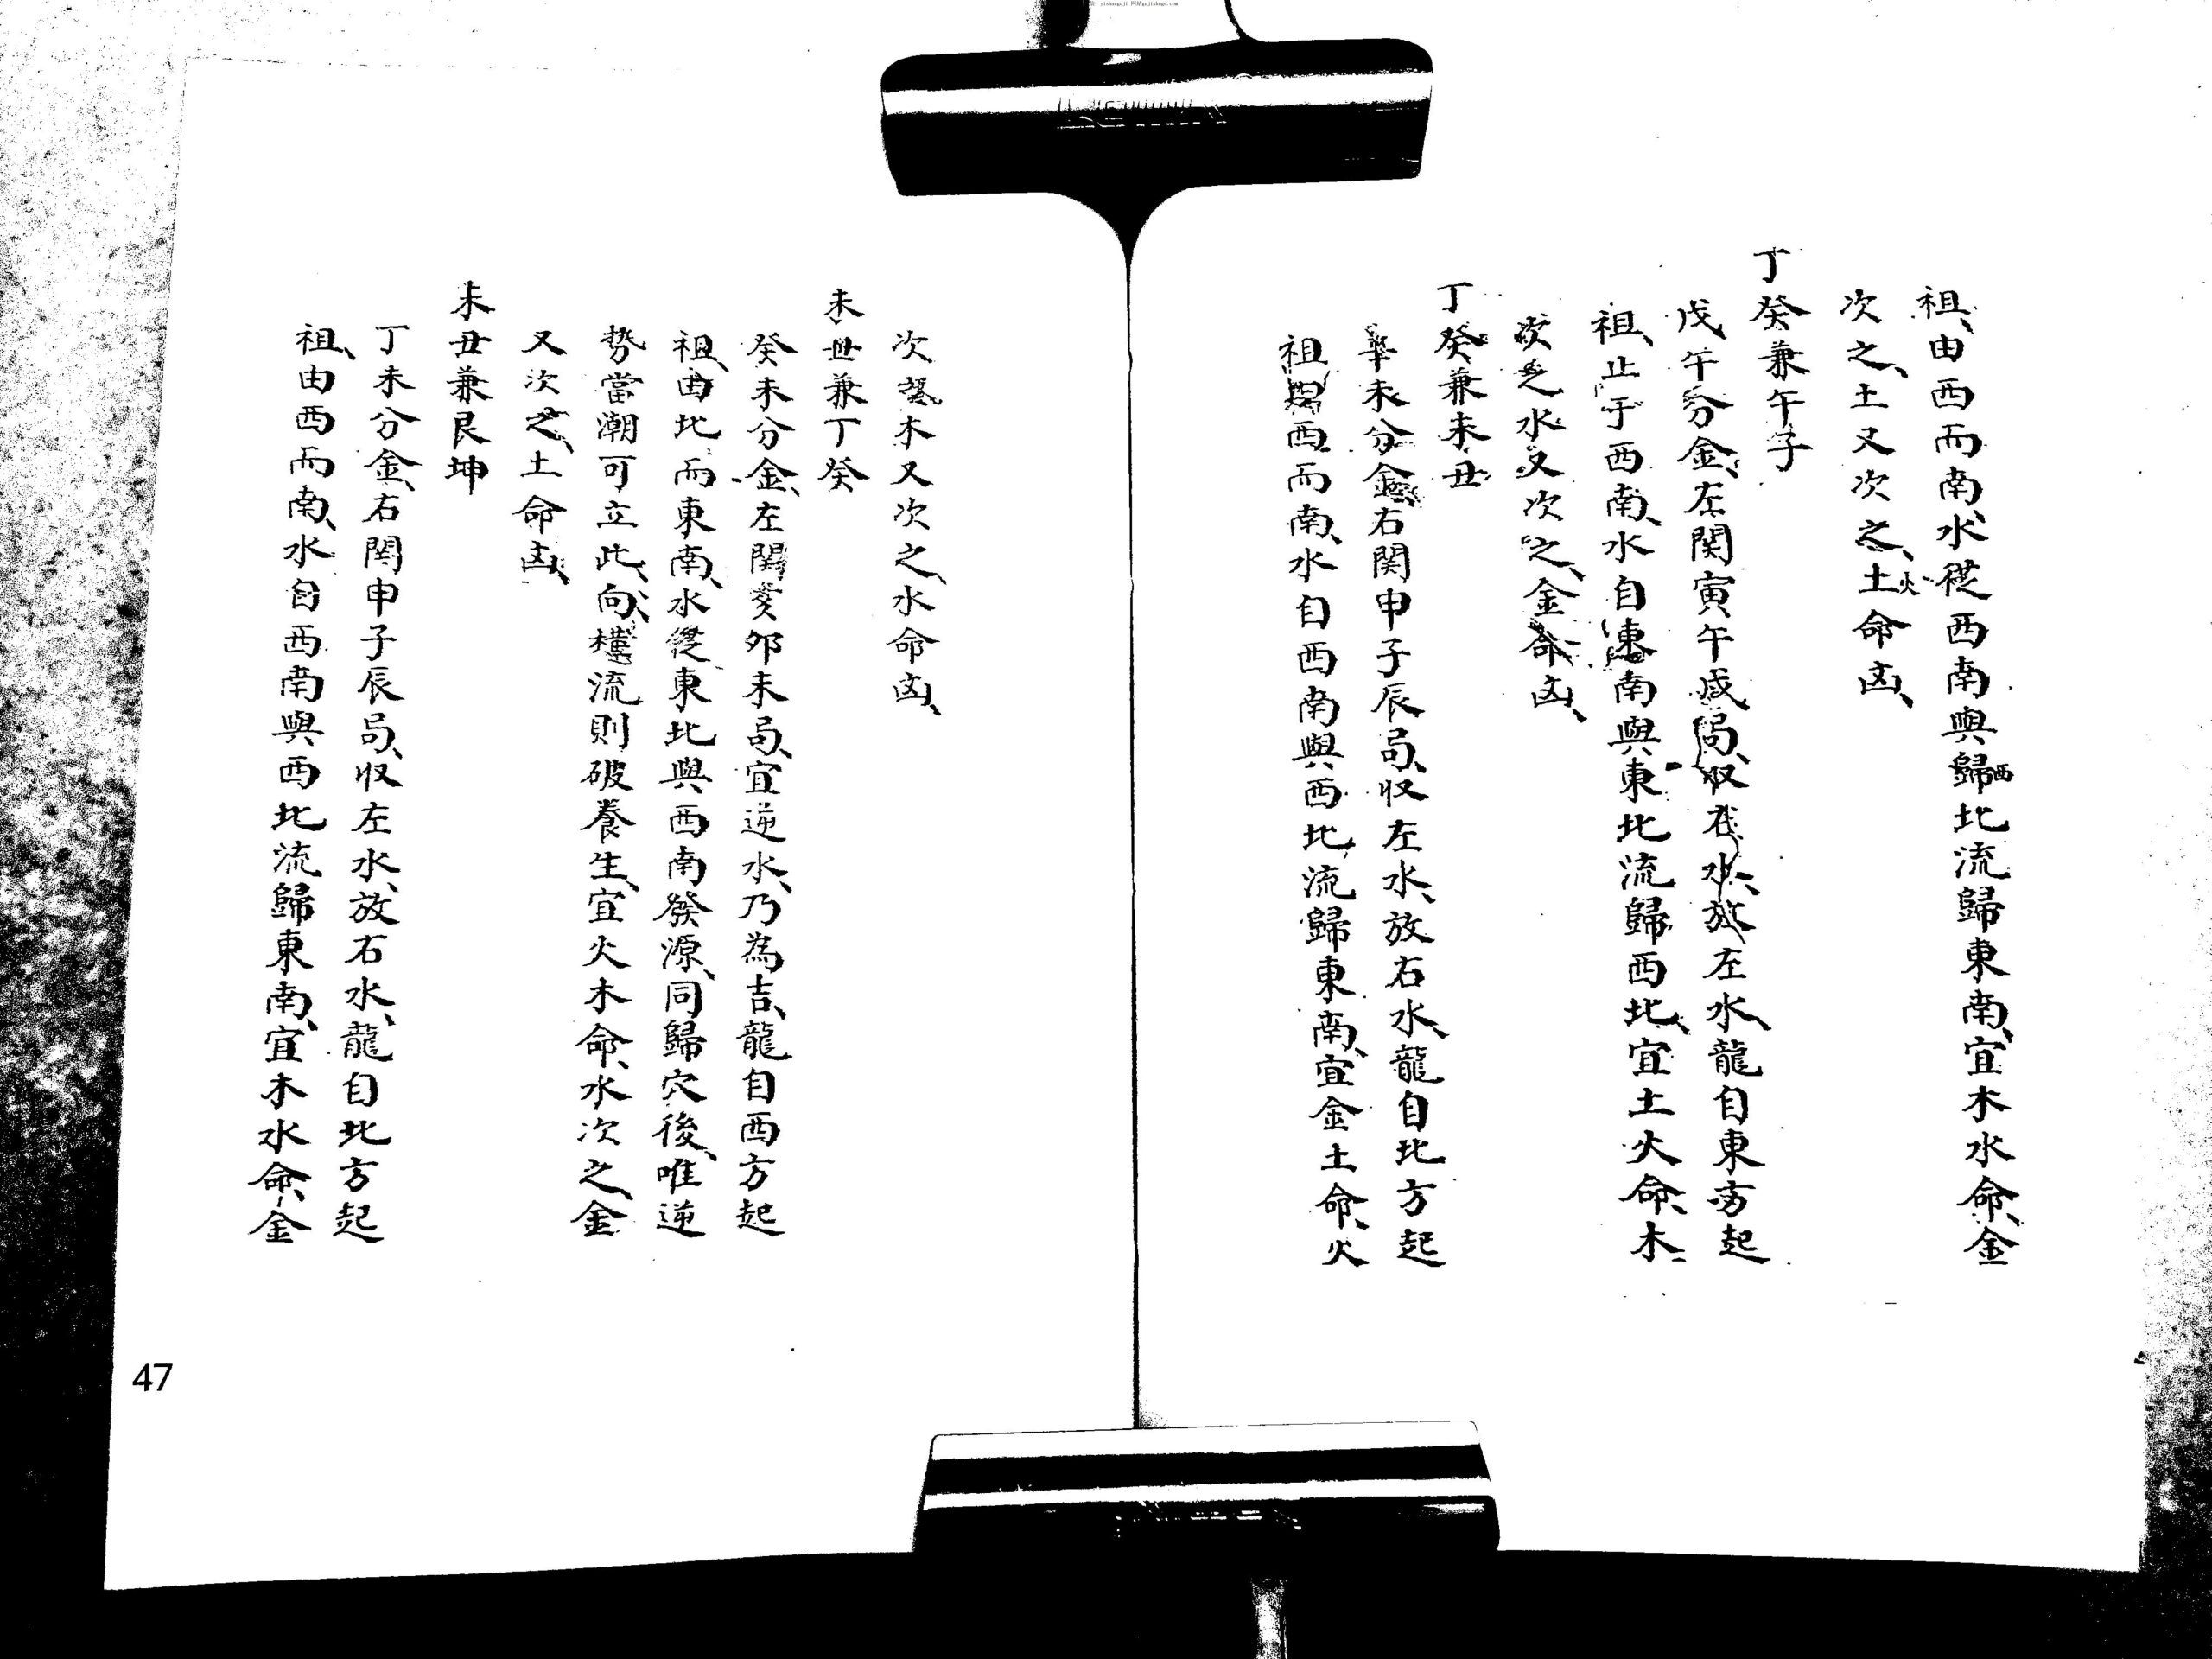 祖、由西而南、水從西南與歸西北流歸東南、宜木水命、金
次之、土又次之、土火命凶、
丁癸兼午子
戊午分金、左関寅午戌局、収右水、放左水、龍自東方起
祖、止于西南、水自東南與東北流歸西北、宜土火命、木
次之水又次之、金命凶、
丁癸兼未丑
辛未分金、右関申子辰局、収左水、放右水、龍自北方起
祖、西而南、水自西南與西北流歸東南、宜金土命、火
次之、木又次之、水命凶、
未丑兼丁癸
癸未分金、左関亥卯未局、宜逆水、乃為吉、龍自西方起
祖、由北而東南、水從東北與西南發源、同歸穴後、唯逆
勢當潮可立此向、橫流則破養生、宜火木命、水次之、金
又次之、土命凶、
未丑兼艮坤
丁未分金、右関申子辰局、収左水、放右水、龍自北方起
祖、由西而南、水自西南與西北流歸東南、宜木水命、金
47